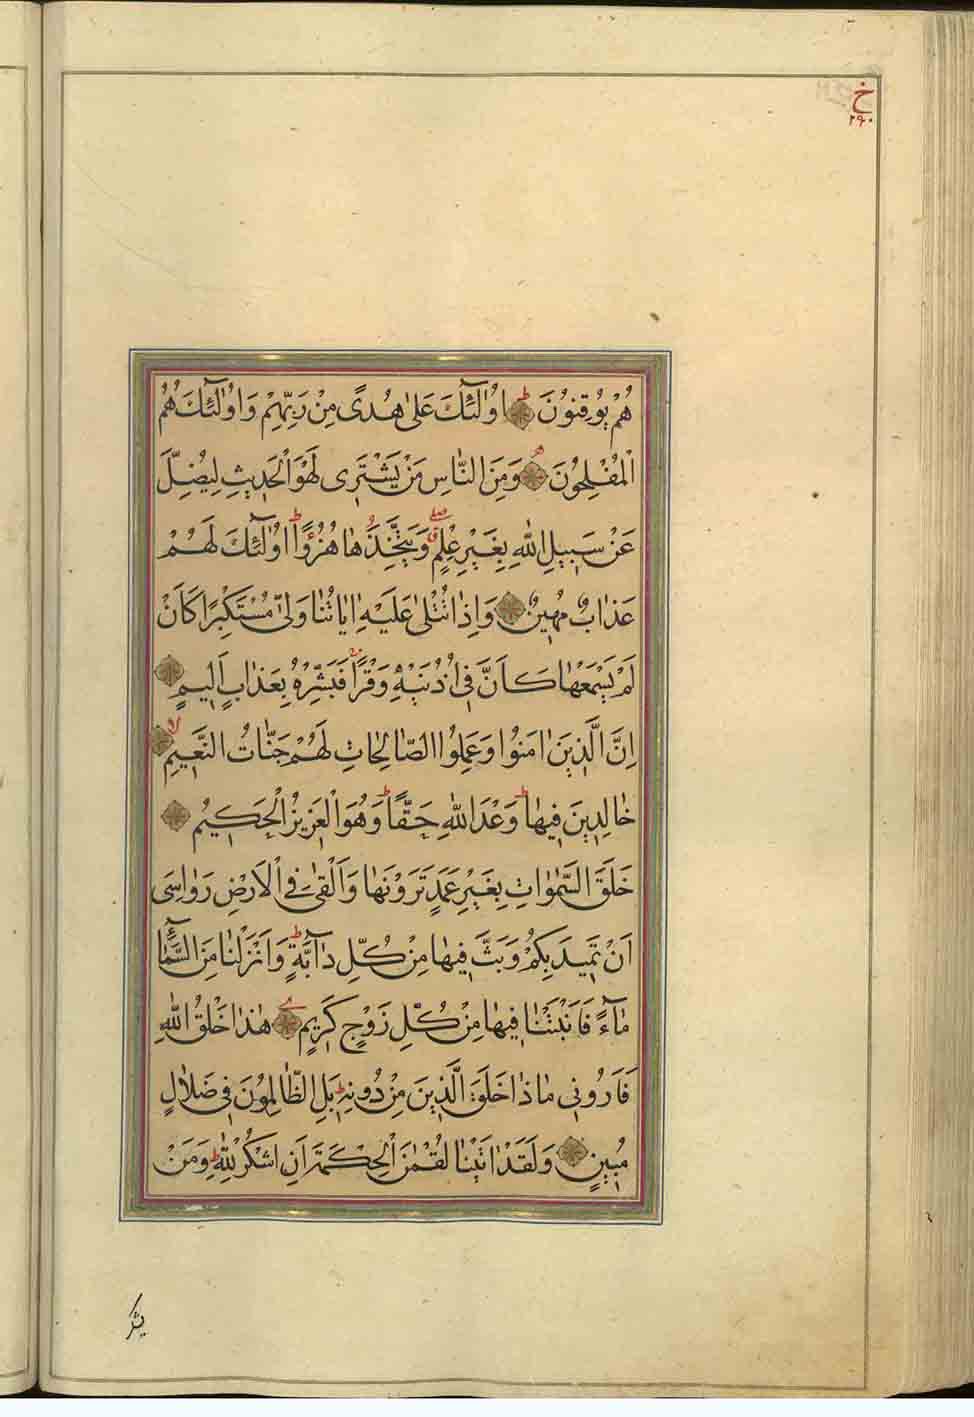 خ
۲۹۰
هُمْ يُوقِنُونَ ط اُولٰٓئِكَ عَلٰى هُدًى مِنْ رَبِّهِمْ وَاُولٰٓئِكَ هُمُ
الْمُفْلِحُونَ وَمِنَ النَّاسِ مَنْ يَشْتَرِى لَهْوَ الْحَدِيثِ لِيُضِلَّ
عَنْ سَبِيلِ اللّٰهِ بِغَيْرِ عِلْمٍ وَيَتَّخِذَهَا هُزُؤًا ط اُولٰٓئِكَ لَهُمْ
عَذَابٌ مُهِينٌ وَاِذَا تُتْلٰى عَلَيْهِ اٰيَاتُنَا وَلّٰى مُسْتَكْبِرًا كَاَنْ
لَمْ يَسْمَعْهَا كَاَنَّ فِى اُذُنَيْهِ وَقْرًا فَبَشِّرْهُ بِعَذَابٍ اَلِيمٍ
اِنَّ الَّذِينَ اٰمَنُوا وَعَمِلُوا الصَّالِحَاتِ لَهُمْ جَنَّاتُ النَّعِيمِ لا
خَالِدِينَ فِيهَا ط وَعْدَ اللّٰهِ حَقًّا ط وَهُوَ الْعَزِيزُ الْحَكِيمُ
خَلَقَ السَّمٰوَاتِ بِغَيْرِ عَمَدٍ تَرَوْنَهَا وَاَلْقٰى فِى الْاَرْضِ رَوَاسِىَ
اَنْ تَمِيدَ بِكُمْ وَبَثَّ فِيهَا مِنْ كُلِّ دَآبَّةٍ ط وَاَنْزَلْنَا مِنَ السَّمَآءِ
مَآءً فَاَنْبَتْنَا فِيهَا مِنْ كُلِّ زَوْجٍ كَرِيمٍ هٰذَا خَلْقُ اللّٰهِ
فَاَرُونِى مَاذَا خَلَقَ الَّذِينَ مِنْ دُونِهِ ط بَلِ الظَّالِمُونَ فِى ضَلَالٍ
مُبِينٍ وَلَقَدْ اٰتَيْنَا لُقْمٰنَ الْحِكْمَةَ اَنِ اشْكُرْ لِلّٰهِ ط وَمَنْ
يشكر